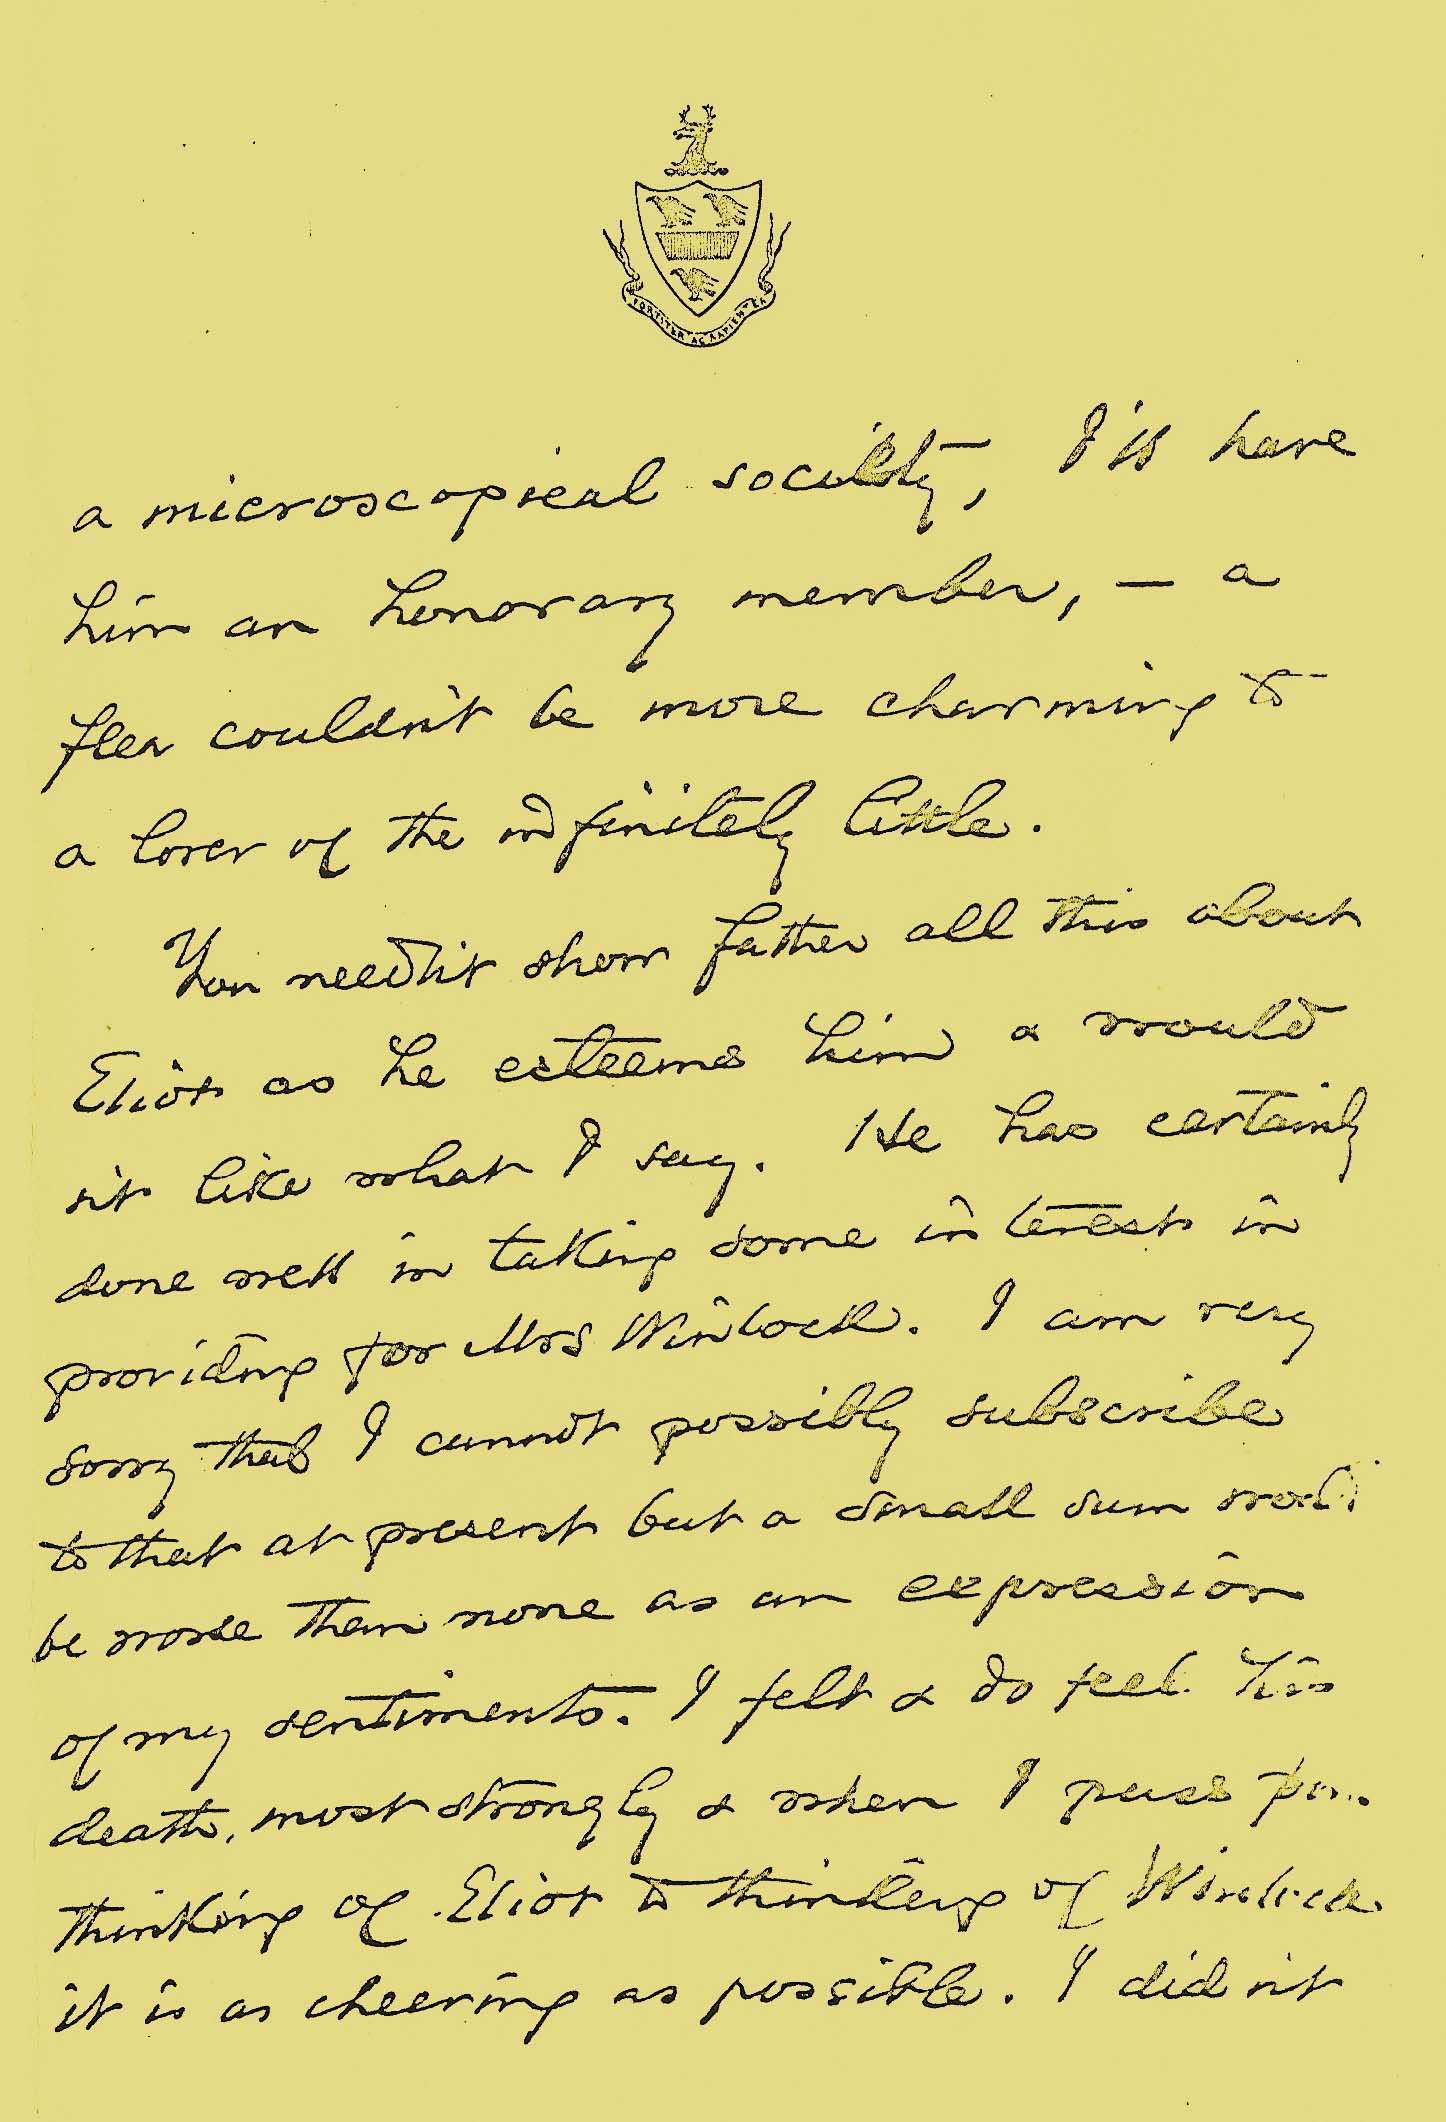 FORTITER AC SAPIENTER
a microscopical society, I'll have
him an honorary member, — a
flea couldn't be more charming to
a lover of the infinitely little.
You needn't show father all this about
Eliot as he esteems him & would
n't like what I say. He has certainly
done well in taking some interest in
providing for Mrs Winlock. I am very
sorry that I cannot possibly subscribe
to that at present but a small sum
be worse than none as an expression
of my sentiments. I felt & do feel his
death, most strongly & when I pass
thinking of Eliot to thinking of Winlock
it is as cheering as possible. I did n't